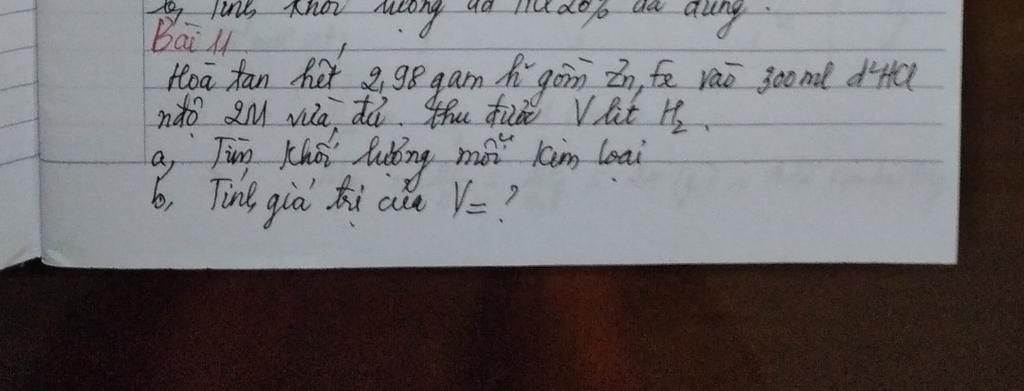 b, Tính khối lượng dd HCl 20% đã dùng.
Bài 11
Hoà tan hết 2,98 gam h² gồm Zn, Fe vào 300ml d² HCl
nđộ 2M vừa đủ. thu được V lit H₂.
a, Tìm khối lượng mỗi kim loại
b, Tính giá trị của V = ?